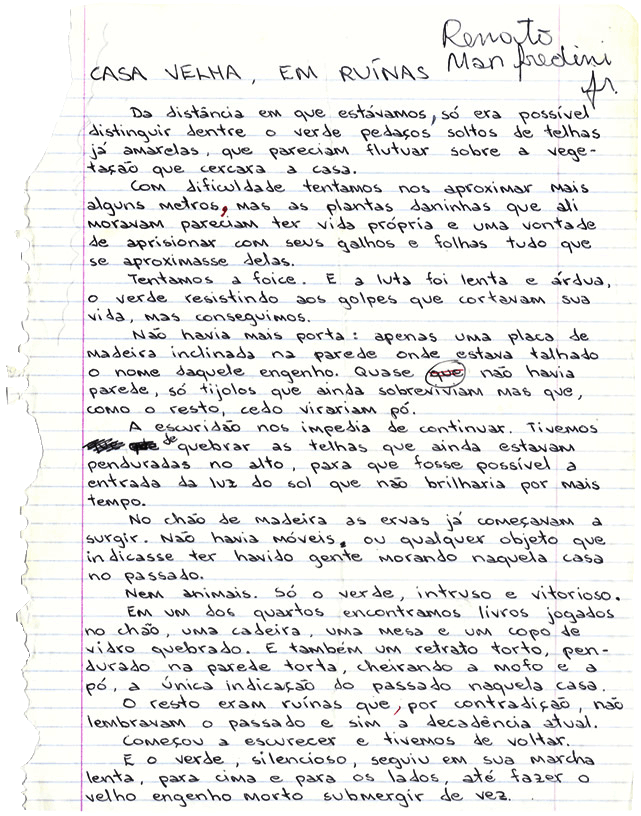 Renato
Manfredini
Jr.
CASA VELHA, EM RUÍNAS
Da distância em que estávamos, só era possível
distinguir dentre o verde pedaços soltos de telhas
já amarelas, que pareciam flutuar sobre a vege-
tação que cercara a casa.
Com dificuldade tentamos nos aproximar mais
alguns metros, mas as plantas daninhas que ali
moravam pareciam ter vida própria e uma vontade
de aprisionar com seus galhos e folhas tudo que
se aproximasse delas.
Tentamos a foice. E a luta foi lenta e árdua,
o verde resistindo aos golpes que cortavam sua
vida, mas conseguimos.
Não havia mais porta: apenas uma placa de
madeira inclinada na parede onde estava talhado
o nome daquele engenho. Quase que não havia
parede, só tijolos que ainda sobreviviam mas que,
como o resto, cedo virariam pó.
A escuridão nos impedia de continuar. Tivemos
de quebrar as telhas que ainda estavam
penduradas no alto, para que fosse possível a
entrada da luz do sol que não brilharia por mais
tempo.
No chão de madeira as ervas já começavam a
surgir. Não havia móveis, ou qualquer objeto que
indicasse ter havido gente morando naquela casa
no passado.
Nem animais. Só o verde, intruso e vitorioso.
Em um dos quartos encontramos livros jogados
no chão, uma cadeira, uma mesa e um copo de
vidro quebrado. E também um retrato torto, pen-
durado na parede torta, cheirando a mofo e a
pó, a única indicação do passado naquela casa.
O resto eram ruínas que, por contradição, não
lembravam o passado e sim a decadência atual.
Começou a escurecer e tivemos de voltar.
E o verde, silencioso, seguiu em sua marcha
lenta, para cima e para os lados, até fazer o
velho engenho morto submergir de vez.